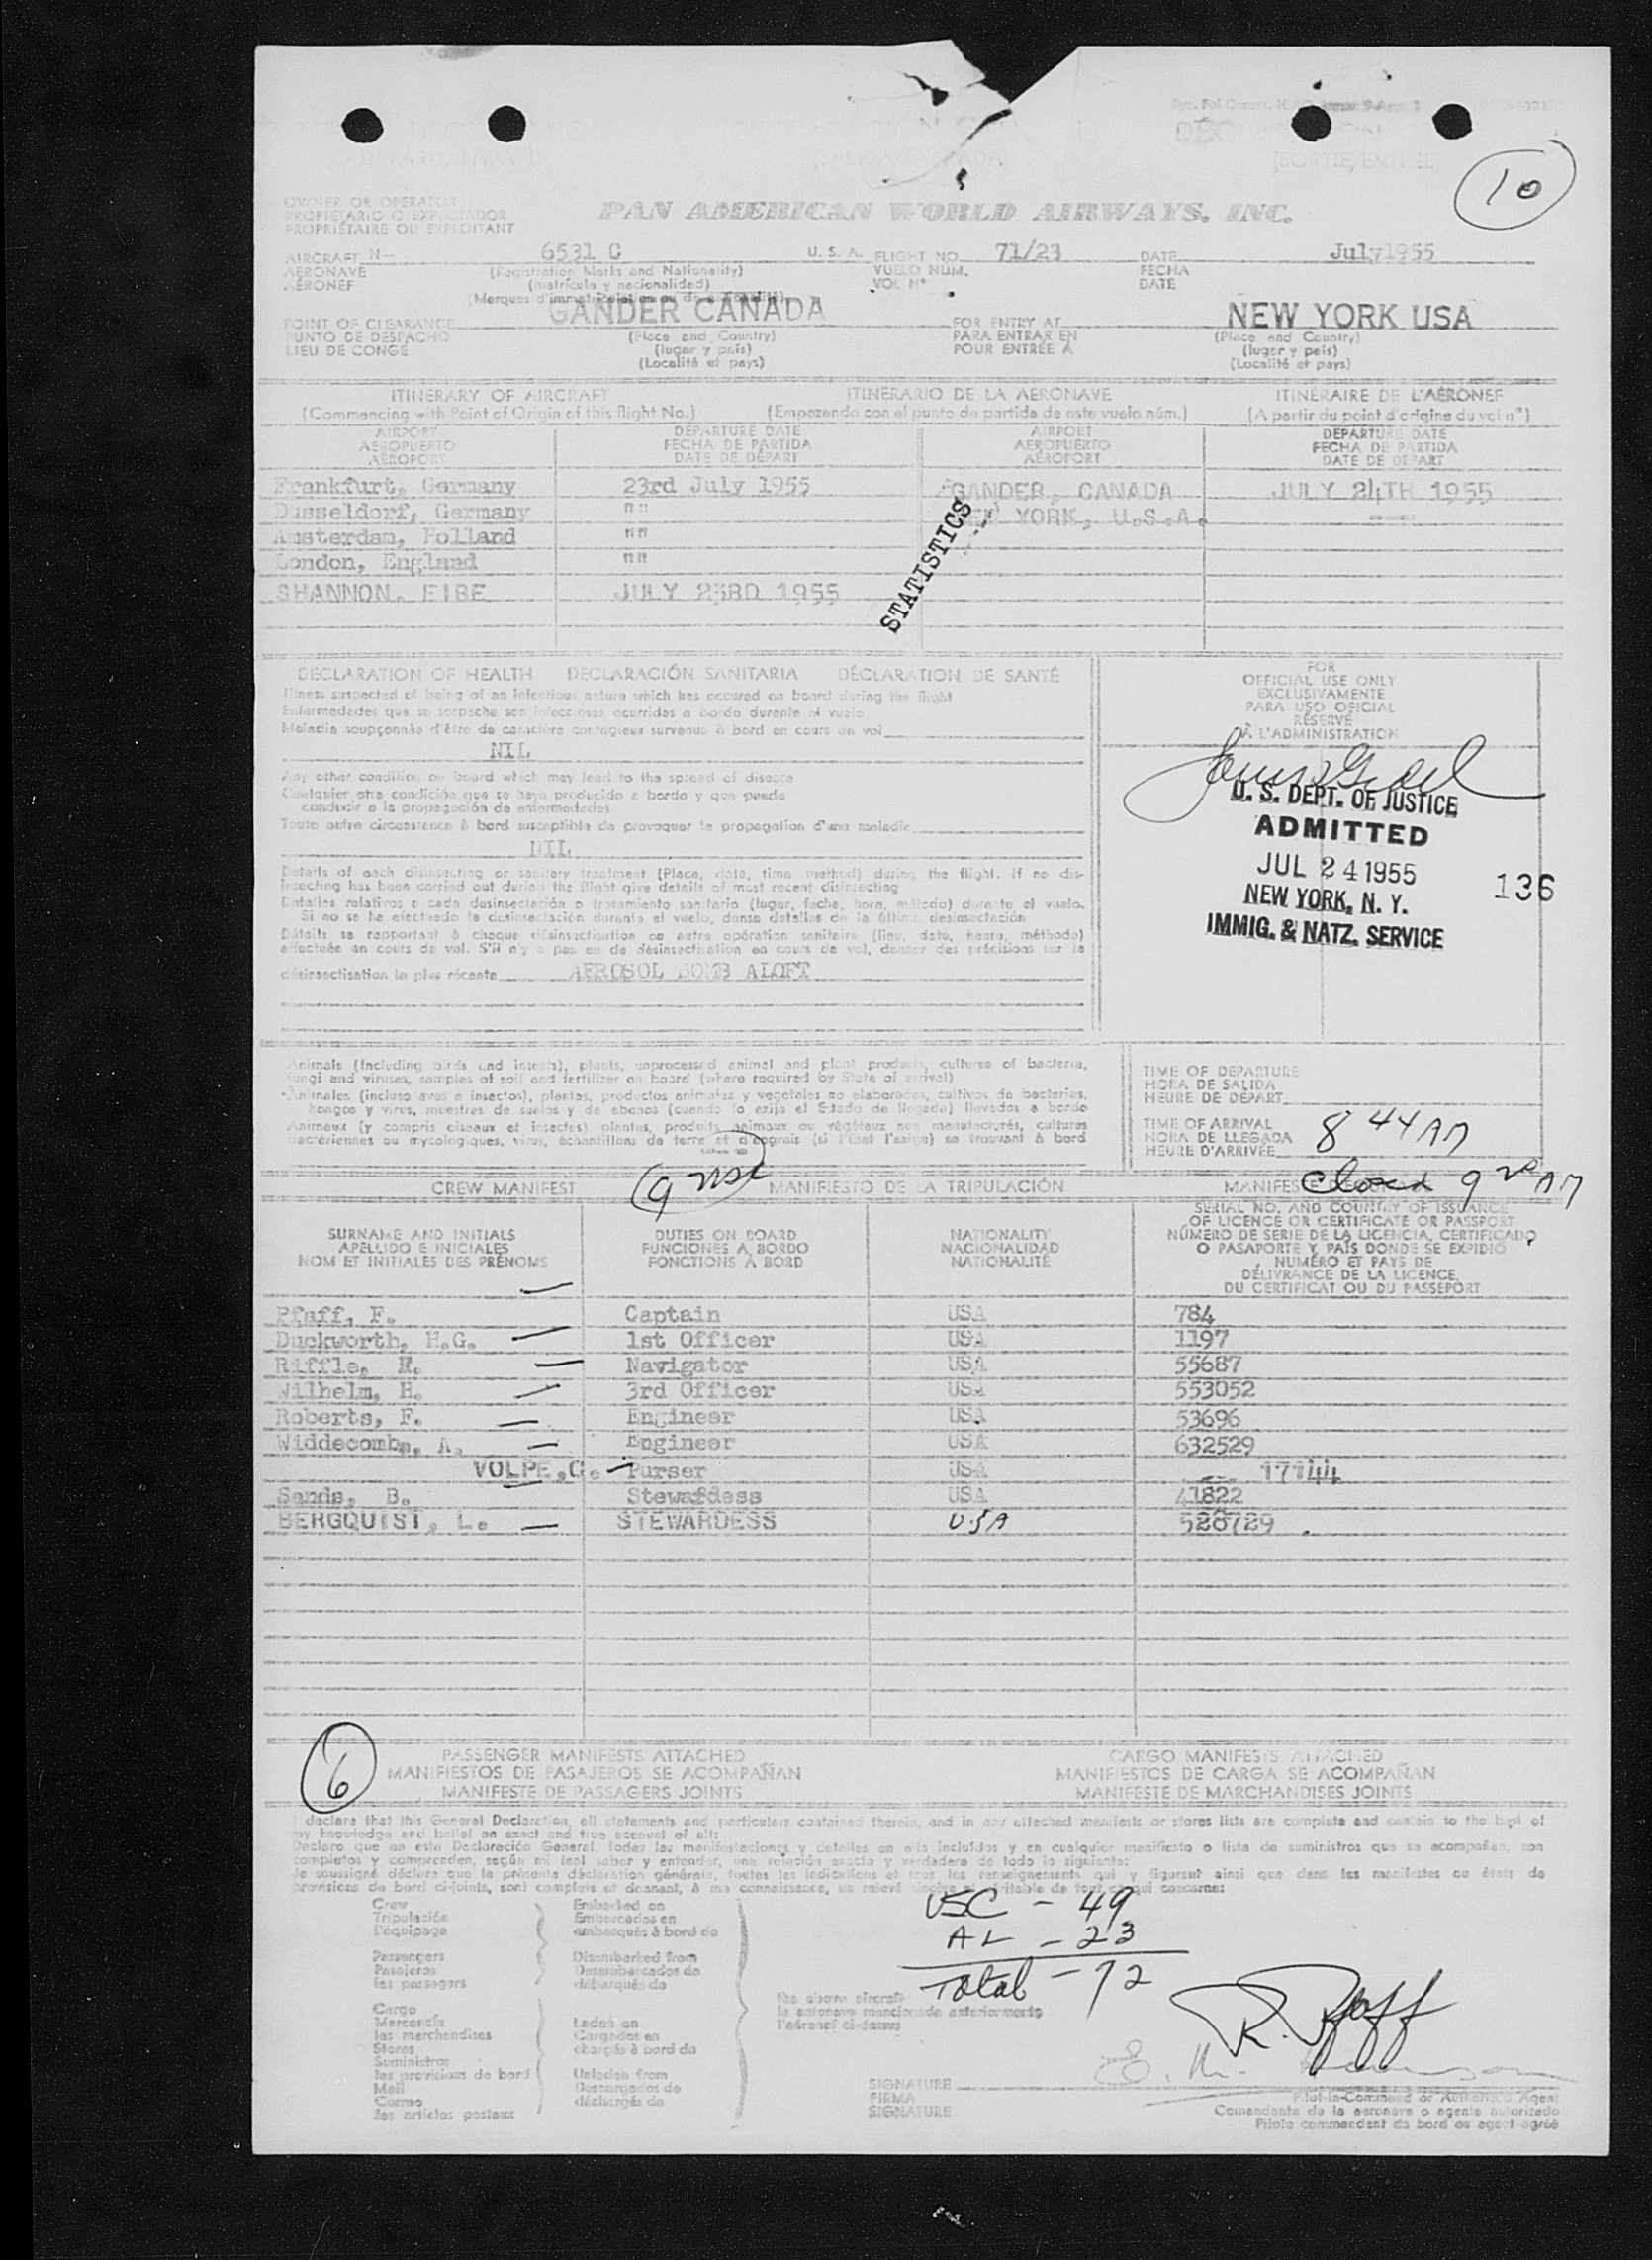 10
OWNER OR OPERATOR
PROPIETARIO O EXPLOTADOR
PROPRIÉTAIRE OU EXPLOITANT
PAN AMERICAN WORLD AIRWAYS, INC.
AIRCRAFT N- 6531 C U. S. A. FLIGHT NO. 71/23 DATE July 1955
AERONAVE (Registration Marks and Nationality) VUELO NUM. FECHA
AÉRONEF (matrícula y nacionalidad) VOL Nº DATE
(Marques d'immatriculation et de nationalité)
POINT OF CLEARANCE GANDER CANADA FOR ENTRY AT NEW YORK USA
PUNTO DE DESPACHO (Place and Country) PARA ENTRAR EN (Place and Country)
LIEU DE CONGÉ (lugar y país) POUR ENTRÉE À (lugar y país)
(Localité et pays) (Localité et pays)
ITINERARY OF AIRCRAFT ITINERARIO DE LA AERONAVE ITINÉRAIRE DE L'AÉRONEF
(Commencing with Point of Origin of this flight No.) (Empezando con el punto de partida de este vuelo núm.) (A partir du point d'origine du vol nº)
AIRPORT DEPARTURE DATE AIRPORT DEPARTURE DATE
AEROPUERTO FECHA DE PARTIDA AEROPUERTO FECHA DE PARTIDA
AÉROPORT DATE DE DÉPART AÉROPORT DATE DE DÉPART
Frankfurt, Germany 23rd July 1955 GANDER, CANADA JULY 24TH 1955
Dusseldorf, Germany " " NEW YORK, U.S.A.
Amsterdam, Holland " "
London, England " "
SHANNON. EIRE JULY 23RD 1955
STATISTICS
DECLARATION OF HEALTH DECLARACIÓN SANITARIA DÉCLARATION DE SANTÉ
Illness suspected of being of an infectious nature which has occured on board during the flight
Enfermedades que se sospecha son infecciosas ocurridas a bordo durante el vuelo
Maladie soupçonnée d'être de caractère contagieux survenue à bord en cours de vol
NIL
Any other condition on board which may lead to the spread of disease
Cualquier otra condición que se haya producido a bordo y que pueda
conducir a la propagación de enfermedades
Toute autre circonstance à bord susceptible de provoquer la propagation d'une maladie
NIL
Details of each disinsecting or sanitary treatment (Place, date, time method) during the flight. If no dis-
insecting has been carried out during the flight give details of most recent disinsecting
Detalles relativos a cada desinsectación o tratamiento sanitario (lugar, fecha, hora, método) durante el vuelo.
Si no se ha efectuado la desinsectación durante el vuelo, dense detalles de la última desinsectación
Détails se rapportant à chaque désinsectisation ou autre opération sanitaire (lieu, date, heure, méthode)
effectuée en cours de vol. S'il n'y a pas eu de désinsectisation en cours de vol, donner des précisions sur la
désinsectisation la plus récente AEROSOL BOMB ALOFT
FOR
OFFICIAL USE ONLY
EXCLUSIVAMENTE
PARA USO OFICIAL
RÉSERVÉ
À L'ADMINISTRATION
U. S. DEPT. OF JUSTICE
ADMITTED
JUL 24 1955 136
NEW YORK, N. Y.
IMMIG. & NATZ. SERVICE
Animals (Including birds and insects), plants, unprocessed animal and plant products, cultures of bacteria,
fungi and viruses, samples of soil and fertilizer on board (where required by State of arrival)
Animales (incluso aves e insectos), plantas, productos animales y vegetales no elaborados, cultivos de bacterias,
hongos y virus, muestras de suelos y de abonos (cuando lo exija el Estado de llegada) llevados a bordo
Animaux (y compris oiseaux et insectes) plantes, produits animaux ou végétaux non manufacturés, cultures
bactériennes ou mycologiques, virus, échantillons de terre et d'engrais (si l'État l'exige) se trouvant à bord
TIME OF DEPARTURE
HORA DE SALIDA
HEURE DE DÉPART
TIME OF ARRIVAL
HORA DE LLEGADA 8 44 AM
HEURE D'ARRIVÉE
Closed 9 20 AM
9 usc
CREW MANIFEST MANIFIESTO DE LA TRIPULACIÓN
SURNAME AND INITIALS DUTIES ON BOARD NATIONALITY SERIAL NO. AND COUNTRY OF ISSUANCE
APELLIDO E INICIALES FUNCIONES A BORDO NACIONALIDAD OF LICENCE OR CERTIFICATE OR PASSPORT
NOM ET INITIALES DES PRÉNOMS FONCTIONS À BORD NATIONALITÉ NÚMERO DE SERIE DE LA LICENCIA, CERTIFICADO
O PASAPORTE Y PAÍS DONDE SE EXPIDIÓ
NUMÉRO ET PAYS DE
DÉLIVRANCE DE LA LICENCE,
DU CERTIFICAT OU DU PASSEPORT
Pfaff, F. Captain USA 784
Duckworth, H.G. 1st Officer USA 1197
Riffle, R. Navigator USA 55687
Wilhelm, H. 3rd Officer USA 553052
Roberts, F. Engineer USA 53696
Widdecombe, A. Engineer USA 632529
VOLPE, C. Purser USA 17144
Sands, B. Stewardess USA 41822
BERGQUIST, L. STEWARDESS USA 528729
6
PASSENGER MANIFESTS ATTACHED CARGO MANIFESTS ATTACHED
MANIFIESTOS DE PASAJEROS SE ACOMPAÑAN MANIFIESTOS DE CARGA SE ACOMPAÑAN
MANIFESTE DE PASSAGERS JOINTS MANIFESTE DE MARCHANDISES JOINTS
I declare that this General Declaration, all statements and particulars contained therein, and in any attached manifests or stores lists are complete and contain to the best of
my knowledge and belief an exact and true account of all:
Declaro que en esta Declaración General, todas las manifestaciones y detalles en ella incluídos y en cualquier manifiesto o lista de suministros que se acompañan, son
completos y comprenden, según mi leal saber y entender, una relación exacta y verdadera de todo lo siguiente:
Je soussigné déclare que la présente déclaration générale, toutes les indications et tous les renseignements qui y figurent ainsi que dans les manifestes ou états de
provisions de bord ci-joints, sont complets et donnent, à ma connaissance, un relevé sincère et véritable de tout ce qui concerne:
Crew Embarked on
Tripulación Embarcados en
L'équipage embarqués à bord de
Passengers Disembarked from
Pasajeros Desembarcados de
les passagers débarqués de
Cargo
Mercancía Laden on
les marchandises Cargados en
Stores chargés à bord de
Suministros
les provisions de bord Unladen from
Mail Descargados de
Correo déchargés de
les articles postaux
the above aircraft
la aeronave mencionada anteriormente
l'aéronef ci-dessus
USC - 49
AL - 23
Total - 72
R. Pfaff
SIGNATURE
FIRMA
SIGNATURE
Pilot-in-Command or Authorized Agent
Comandante de la aeronave o agente autorizado
Pilote commandant de bord ou agent agréé